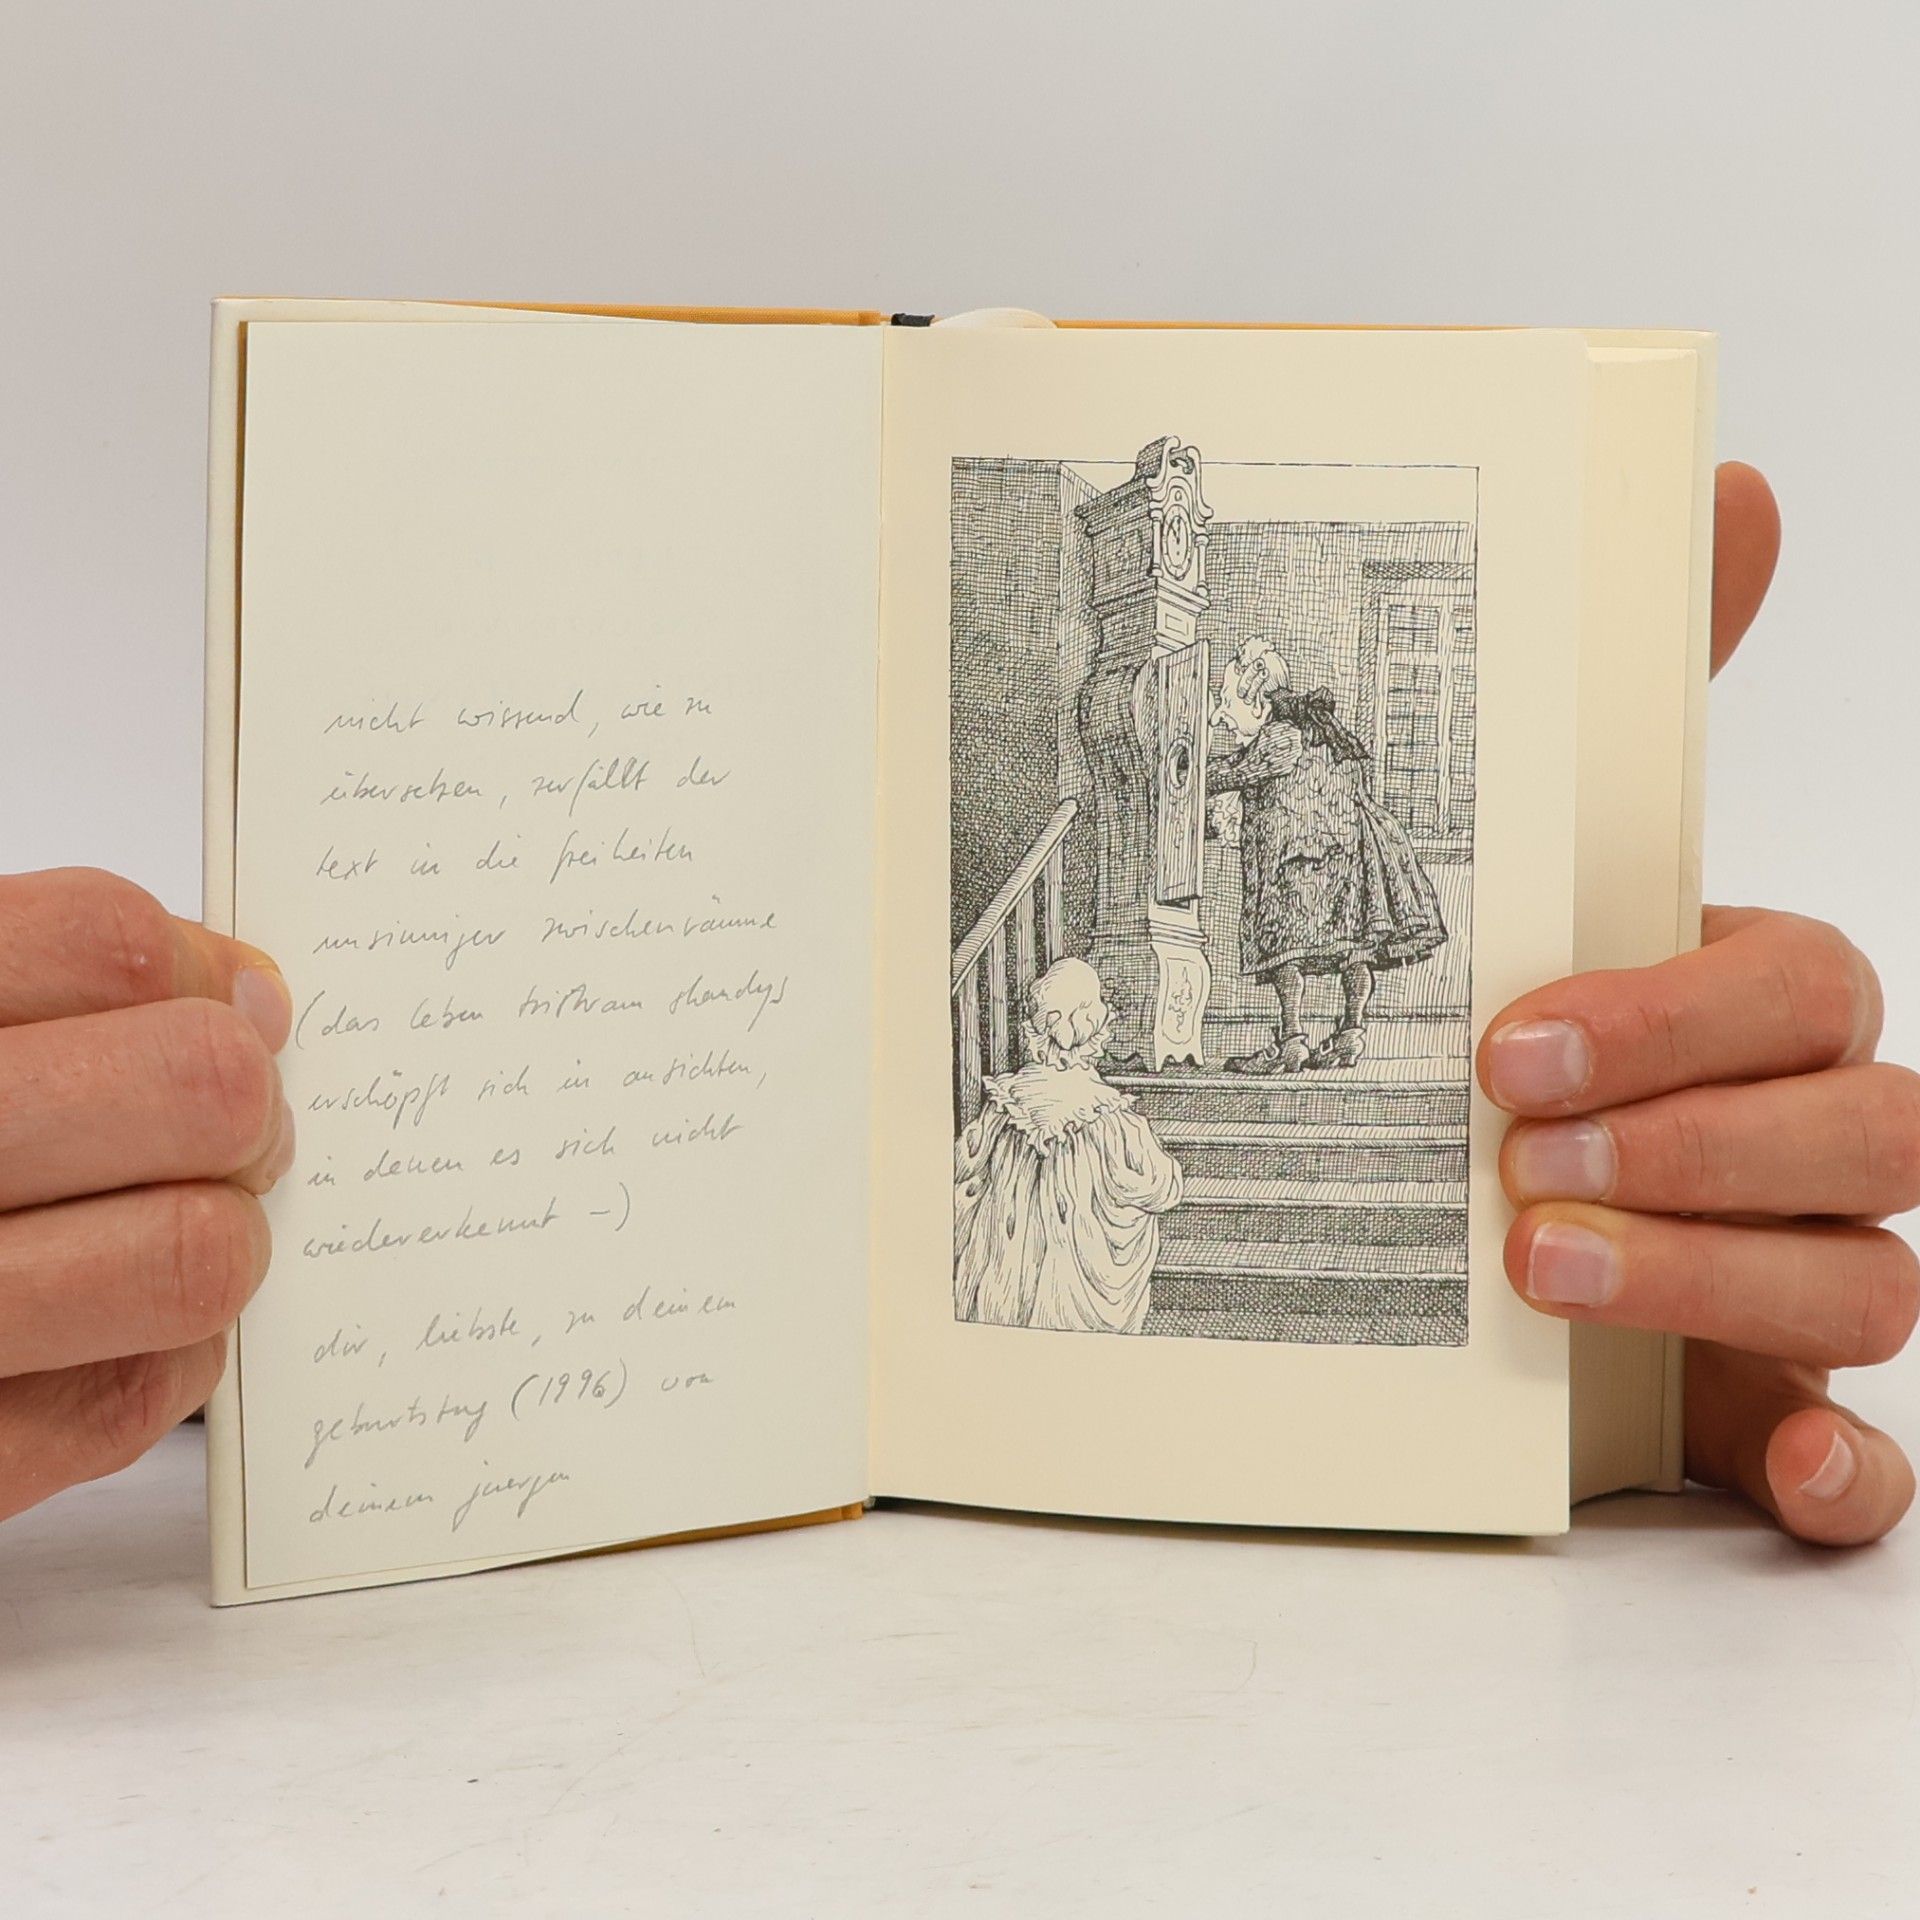 nicht wissend, wie zu
übersetzen, zerfällt der
text in die freiheiten
unsinniger zwischenräume
(das leben tristram shandys
erschöpft sich in ansichten,
in denen es sich nicht
wiedererkennt -)
dir, liebste, zu deinem
geburtstag (1996) von
deinem juergen